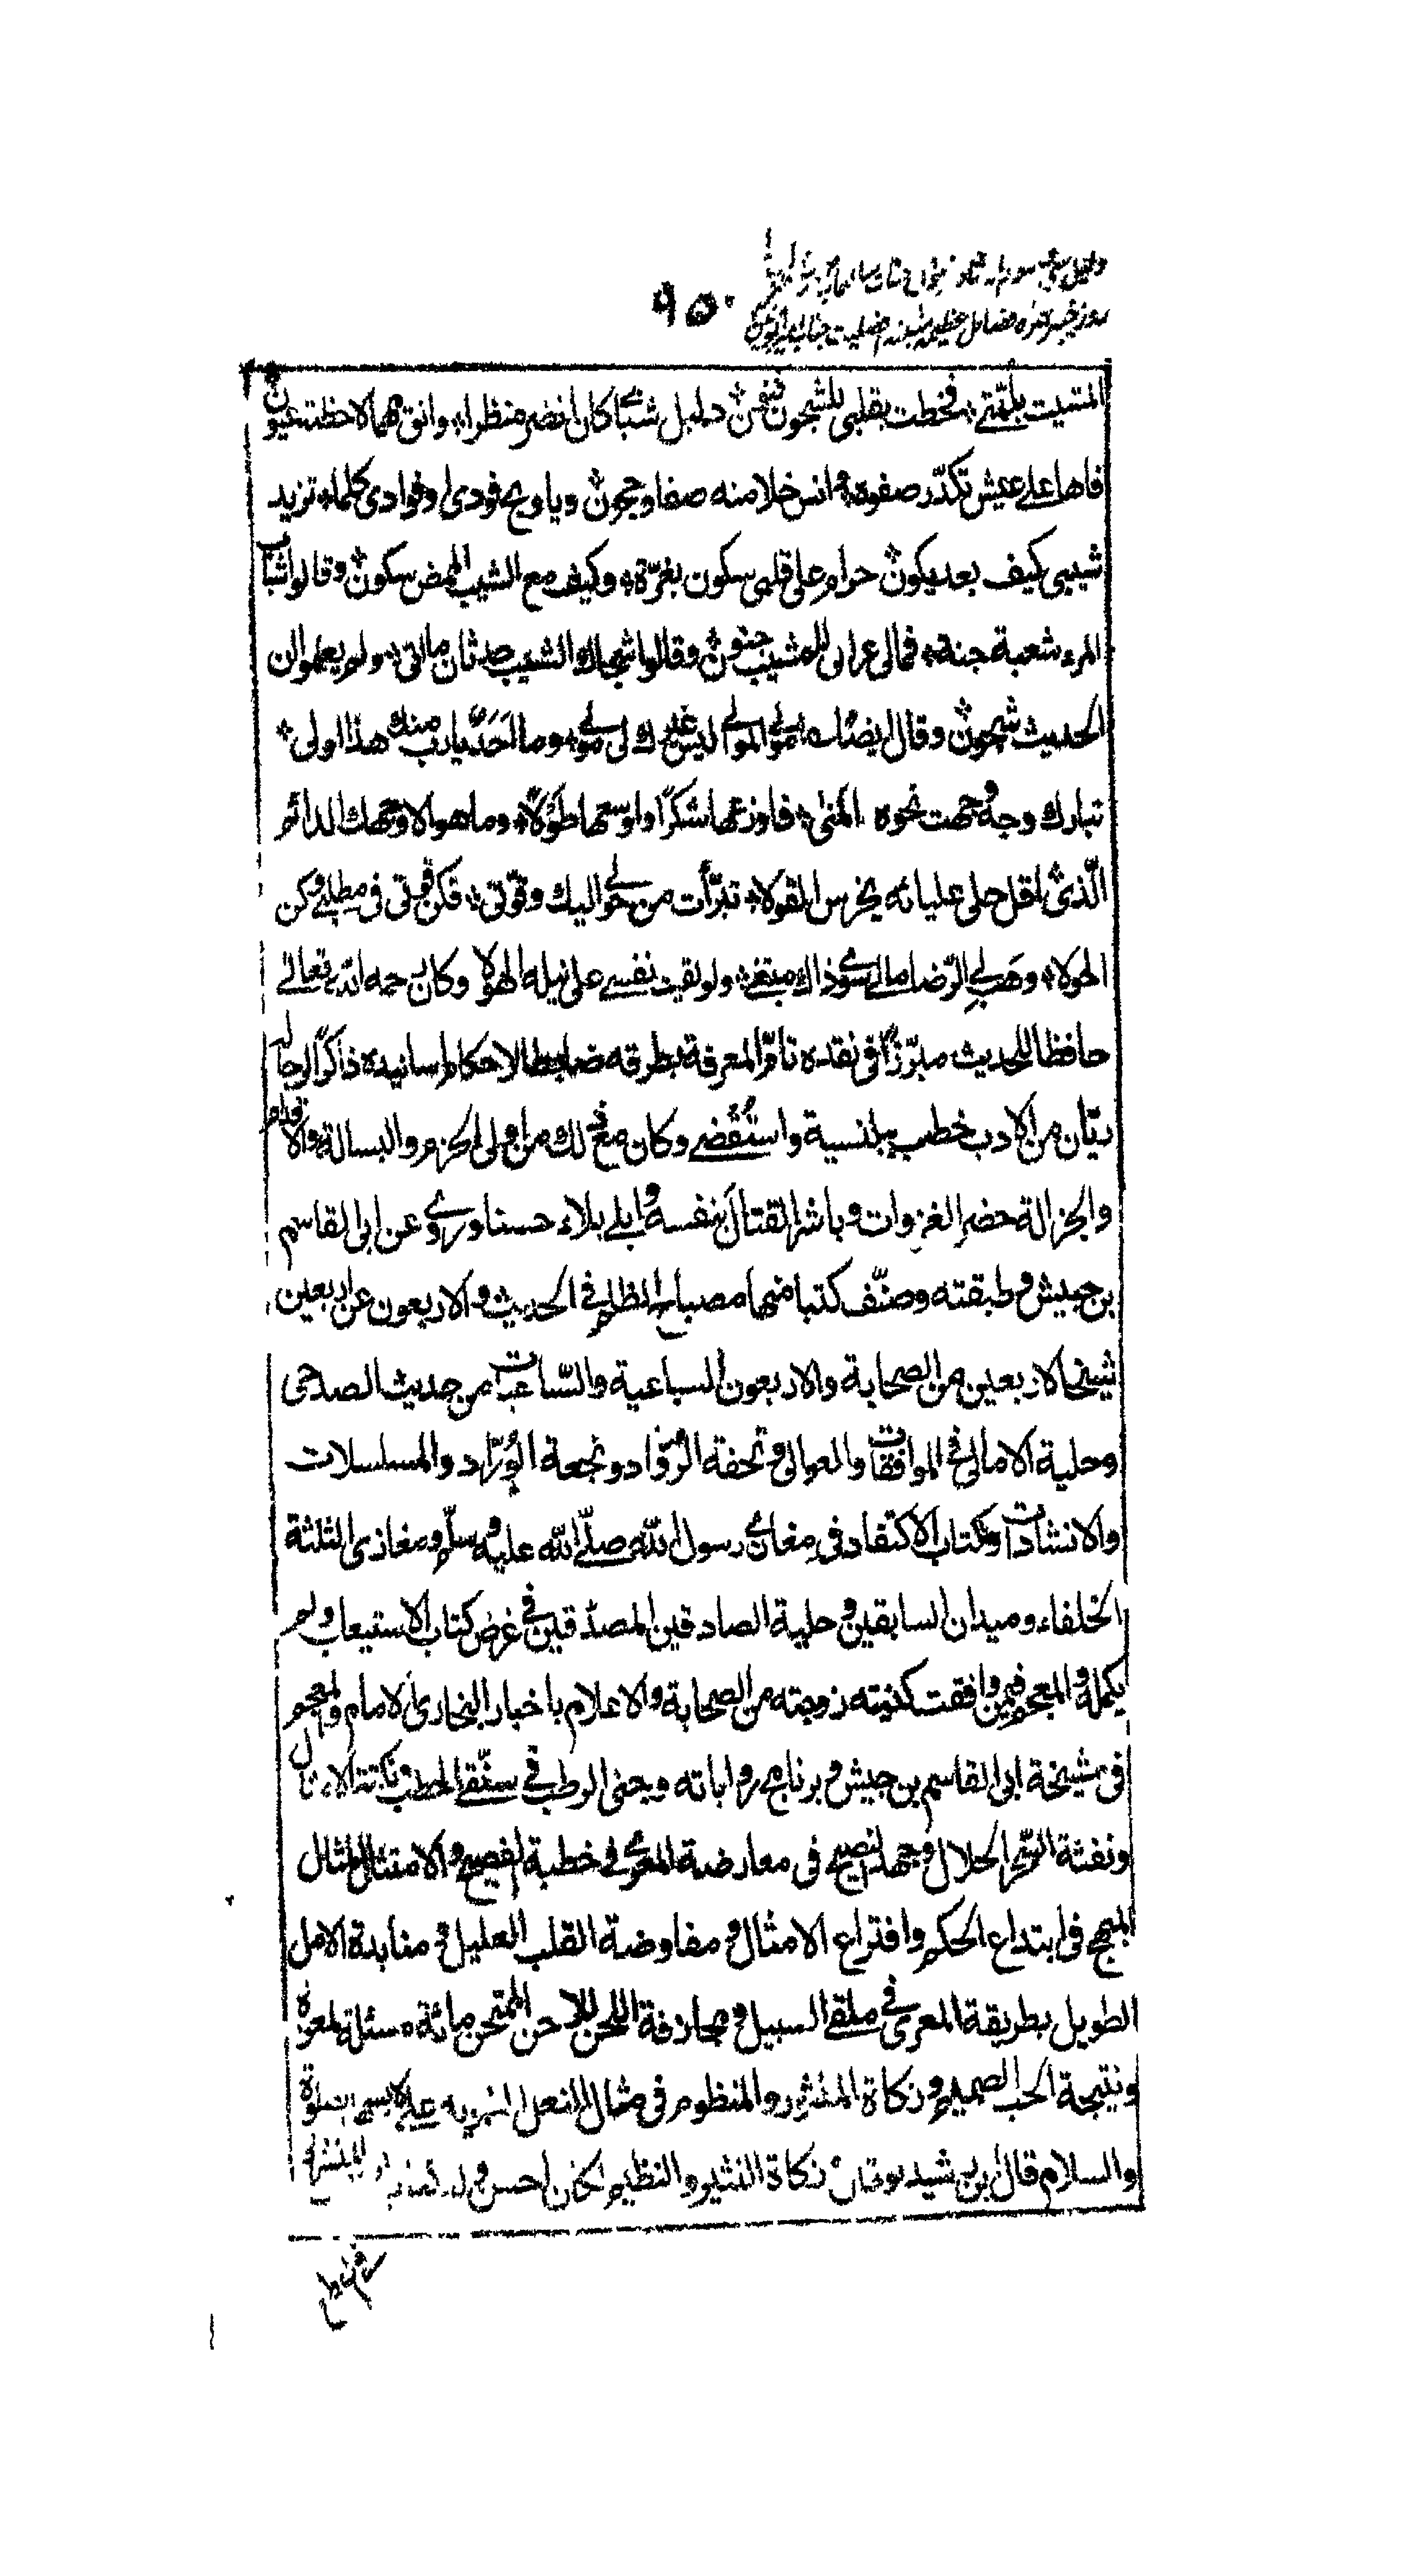 دليل سي
روز خيبر فضائل عظيمه
٩٥٠
المشيب بلمتي * فخطت بقلبي للشجون فنون * دليل شباب كان انضر منظرا * وانق مهما لاحظته عيون
فاها على عيش تكدّر صفوه * وانس خلا منه صفا وحجون * ويا ويح فودى او فوادى كلما * تزيد
شيبى كيف بعد يكون * حرام على قلبى سكون بغرّة * وكيف مع الشيب الممض سكون * وقالوا شباب
المرء شعبة جنة * فمالى عرانى للمشيب جنون * وقالوا شجاك الشيب حدثان ما اتى * ولم يعلموا ان
الحديث شجون * وقال ايضا * امولى الموالى ليس غيرك لى مولى * وما احد يا رب منك هذا اولى *
تبارك وجه وجهت نحوه المنى * فاوزعها شكرا واوسعها طولا * وما هو الا وجهك الدائم
الذى * اقل حلى عليائه يخرس القولا * تبرأت من حولى اليك وقوّتى * فكن قوتى فى مطلبى وكن
الحولا * وهب لى الرضا مالى سوى ذاك مبتغى * ولو لقيت نفسى على نيله الهولا وكان رحمه الله تعالى
حافظا للحديث مبرّزا فى نقده تامّ المعرفة بطرقه ضابطا لاحكام اسانيده ذاكرا لرجاله
ريّان من الادب خطب ببلنسية واستقضى وكان مع ذلك من اولى الحزم والبسالة والاقدام
والجزالة حضر الغزوات وباشر القتال بنفسه وابلى بلاء حسنا وروى عن ابى القاسم
بن حبيش وطبقته وصنّف كتبا منها مصباح الظلم فى الحديث والاربعون عن اربعين
شيخا لاربعين من الصحابة والاربعون السباعية والسباعيات من حديث الصدفى
وحلية الامالى فى الموافقات والعوالى وتحفة الروّاد ونجعة الورّاد والمسلسلات
والانشادات وكتاب الاكتفاء فى مغازى رسول الله صلّى الله عليه وسلّم ومغازى الثلثة
الخلفاء وميدان السابقين وحلية الصادقين المصدّقين فى غرض كتاب الاستيعاب ولم
يكمله والمعجم فيمن وافقت كنيته زوجته من الصحابة والاعلام باخبار البخارى الامام والمعجم
فى مشيخة ابى القاسم بن حبيش وبرنامج رواياته وجنى الرطب فى سنّى الخطب ونكتة الامثال
ونفثة السحر الحلال وجهد النصيح فى معارضة المعرى فى خطبة الفصيح والامتثال لمثال
المبهج فى ابتداع الحكم واختراع الامثال ومفاوضة القلب العليل ومنابذة الامل
الطويل بطريقة المعرى فى ملقى السبيل ومجازفة اللحن للاحن الممتحن مائة مسئلة ملغزة
ونتيجة الحب الصميم وزكاة المنثور والمنظوم فى مثال النعل النبوية على لابسها الصلوة
والسلام قال ابن رشيد لو قال زكاة النثير والنظيم لكان احسن وله